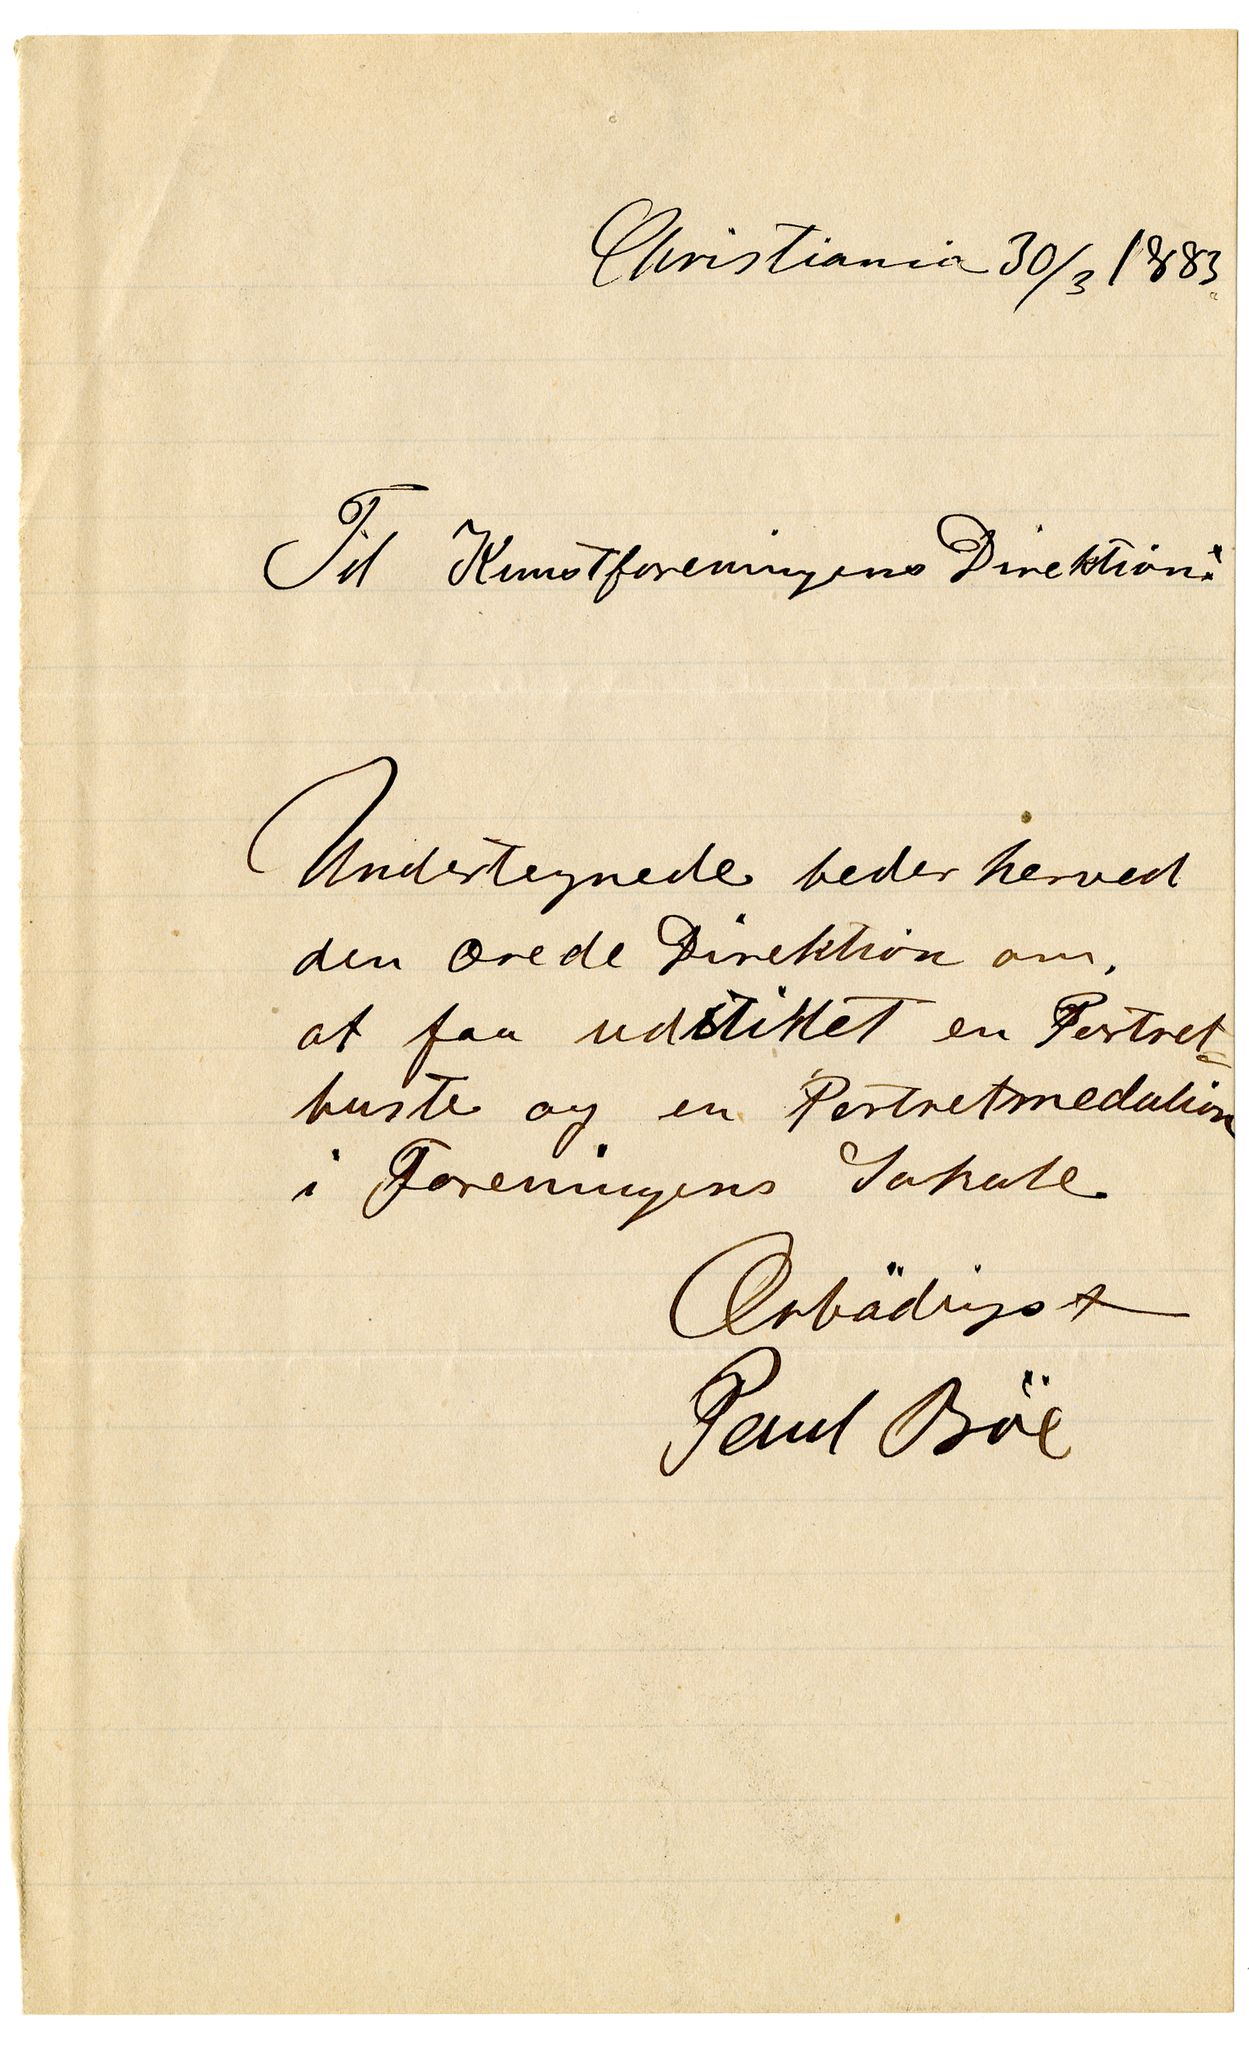 Christiania 30/3 1883.
Til Kunstforeningens Direktion!
Undertegnede beder herved
den ærede Direktion om,
at faa udstillet en Portret-
buste og en Portretmedalion
i Foreningens Lokale
Ærbödigst
Paul Böe